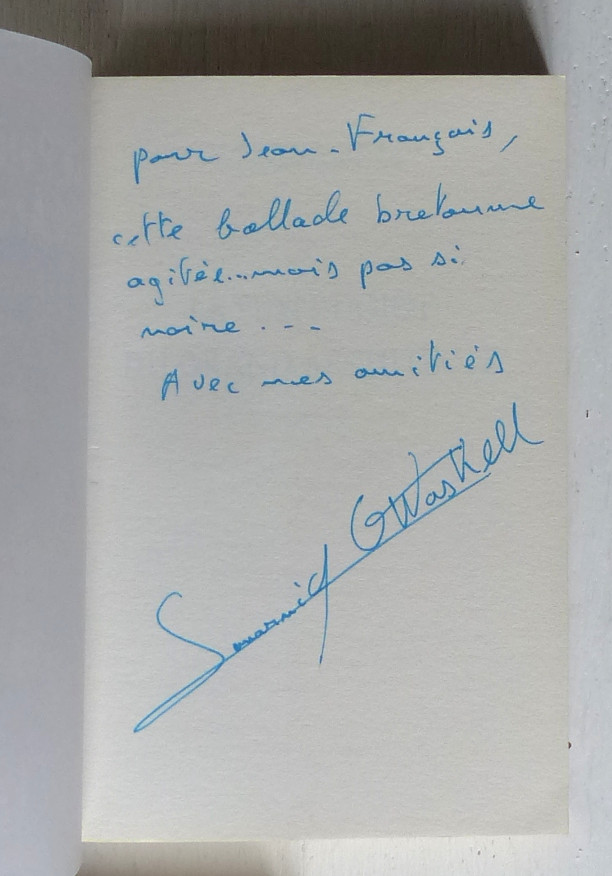 pour Jean-François,
cette ballade bretonne
agitée... mais pas si
noire . . .
Avec mes amitiés